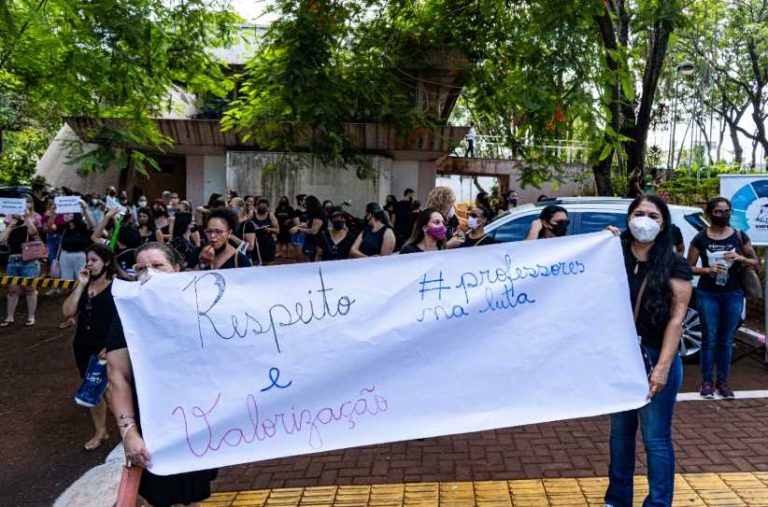 Respeito
e
Valorização
#professores
na luta